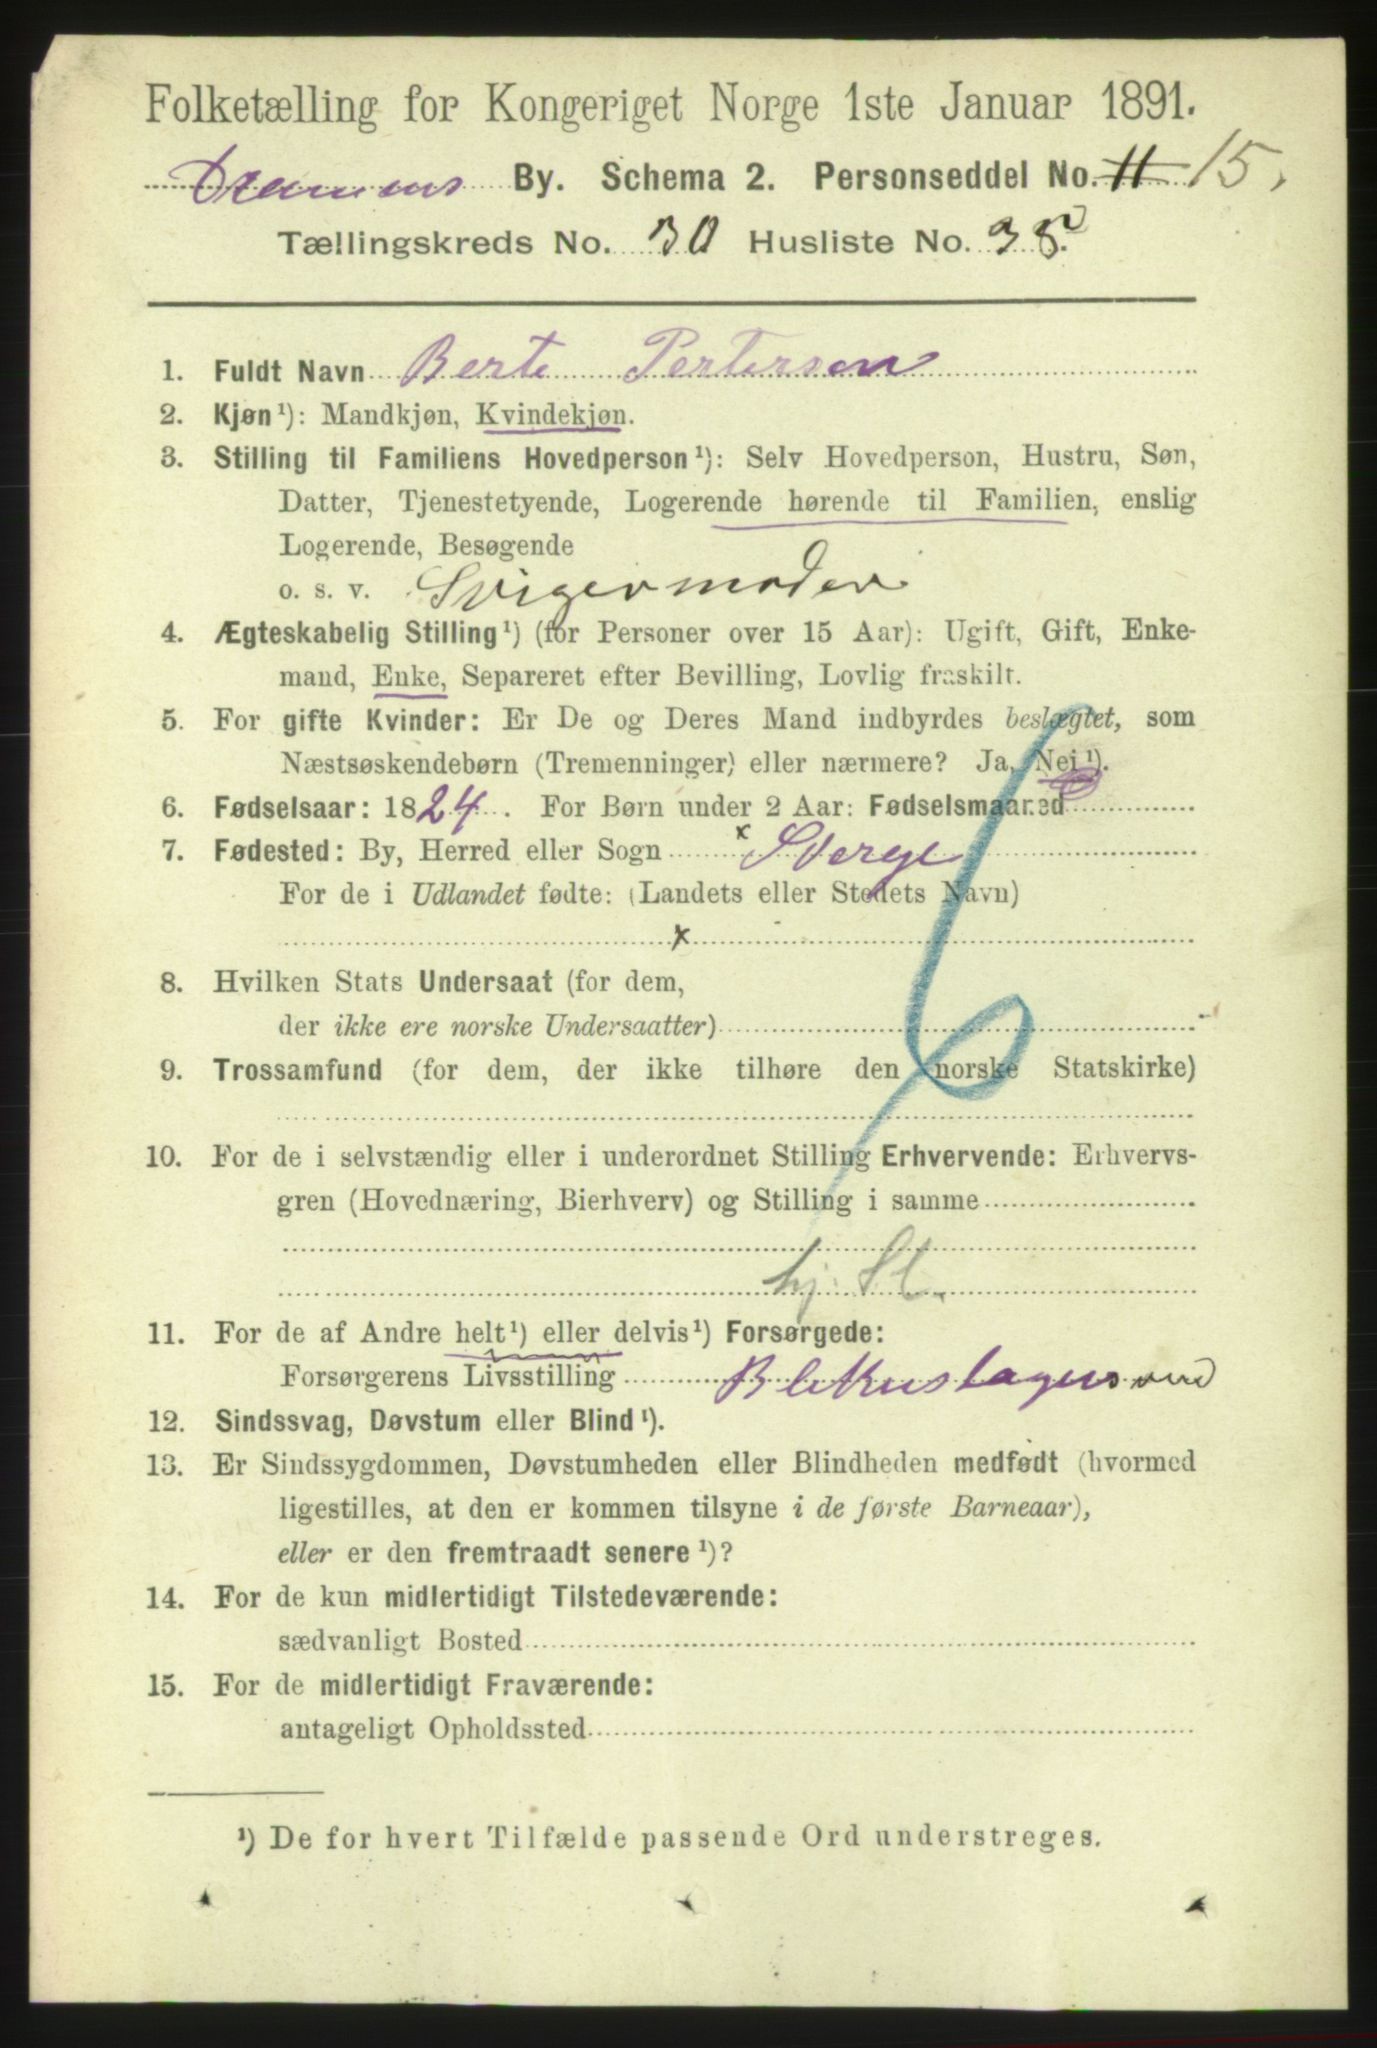 Folketælling for Kongeriget Norge 1ste Januar 1891.
Drammens By. Schema 2. Personseddel No. 11 15.
Tællingskreds No. 30 Husliste No. 38.
1. Fuldt Navn Berte Pertersen
2. Kjøn¹): Mandkjøn, Kvindekjøn.
3. Stilling til Familiens Hovedperson¹): Selv Hovedperson, Hustru, Søn,
Datter, Tjenestetyende, Logerende hørende til Familien, enslig
Logerende, Besøgende
o. s. v. Svigermoder
4. Ægteskabelig Stilling¹) (for Personer over 15 Aar): Ugift, Gift, Enke-
mand, Enke, Separeret efter Bevilling, Lovlig fraskilt.
5. For gifte Kvinder: Er De og Deres Mand indbyrdes beslægtet, som
Næstsøskendebørn (Tremenninger) eller nærmere? Ja, Nei¹).
6. Fødselsaar: 1824. For Børn under 2 Aar: Fødselsmaaned
7. Fødested: By, Herred eller Sogn x Sverge
For de i Udlandet fødte: (Landets eller Stedets Navn)
x
8. Hvilken Stats Undersaat (for dem,
der ikke ere norske Undersaatter)
9. Trossamfund (for dem, der ikke tilhøre den norske Statskirke)
10. For de i selvstændig eller i underordnet Stilling Erhvervende: Erhvervs-
gren (Hovednæring, Bierhverv) og Stilling i samme
hj. Sl.
11. For de af Andre helt¹) eller delvis¹) Forsørgede:
Forsørgerens Livsstilling
12. Sindssvag, Døvstum eller Blind¹).
13. Er Sindssygdommen, Døvstumheden eller Blindheden medfødt (hvormed
ligestilles, at den er kommen tilsyne i de første Barneaar),
eller er den fremtraadt senere¹)?
14. For de kun midlertidigt Tilstedeværende:
sædvanligt Bosted
15. For de midlertidigt Fraværende:
antageligt Opholdssted
¹) De for hvert Tilfælde passende Ord understreges.